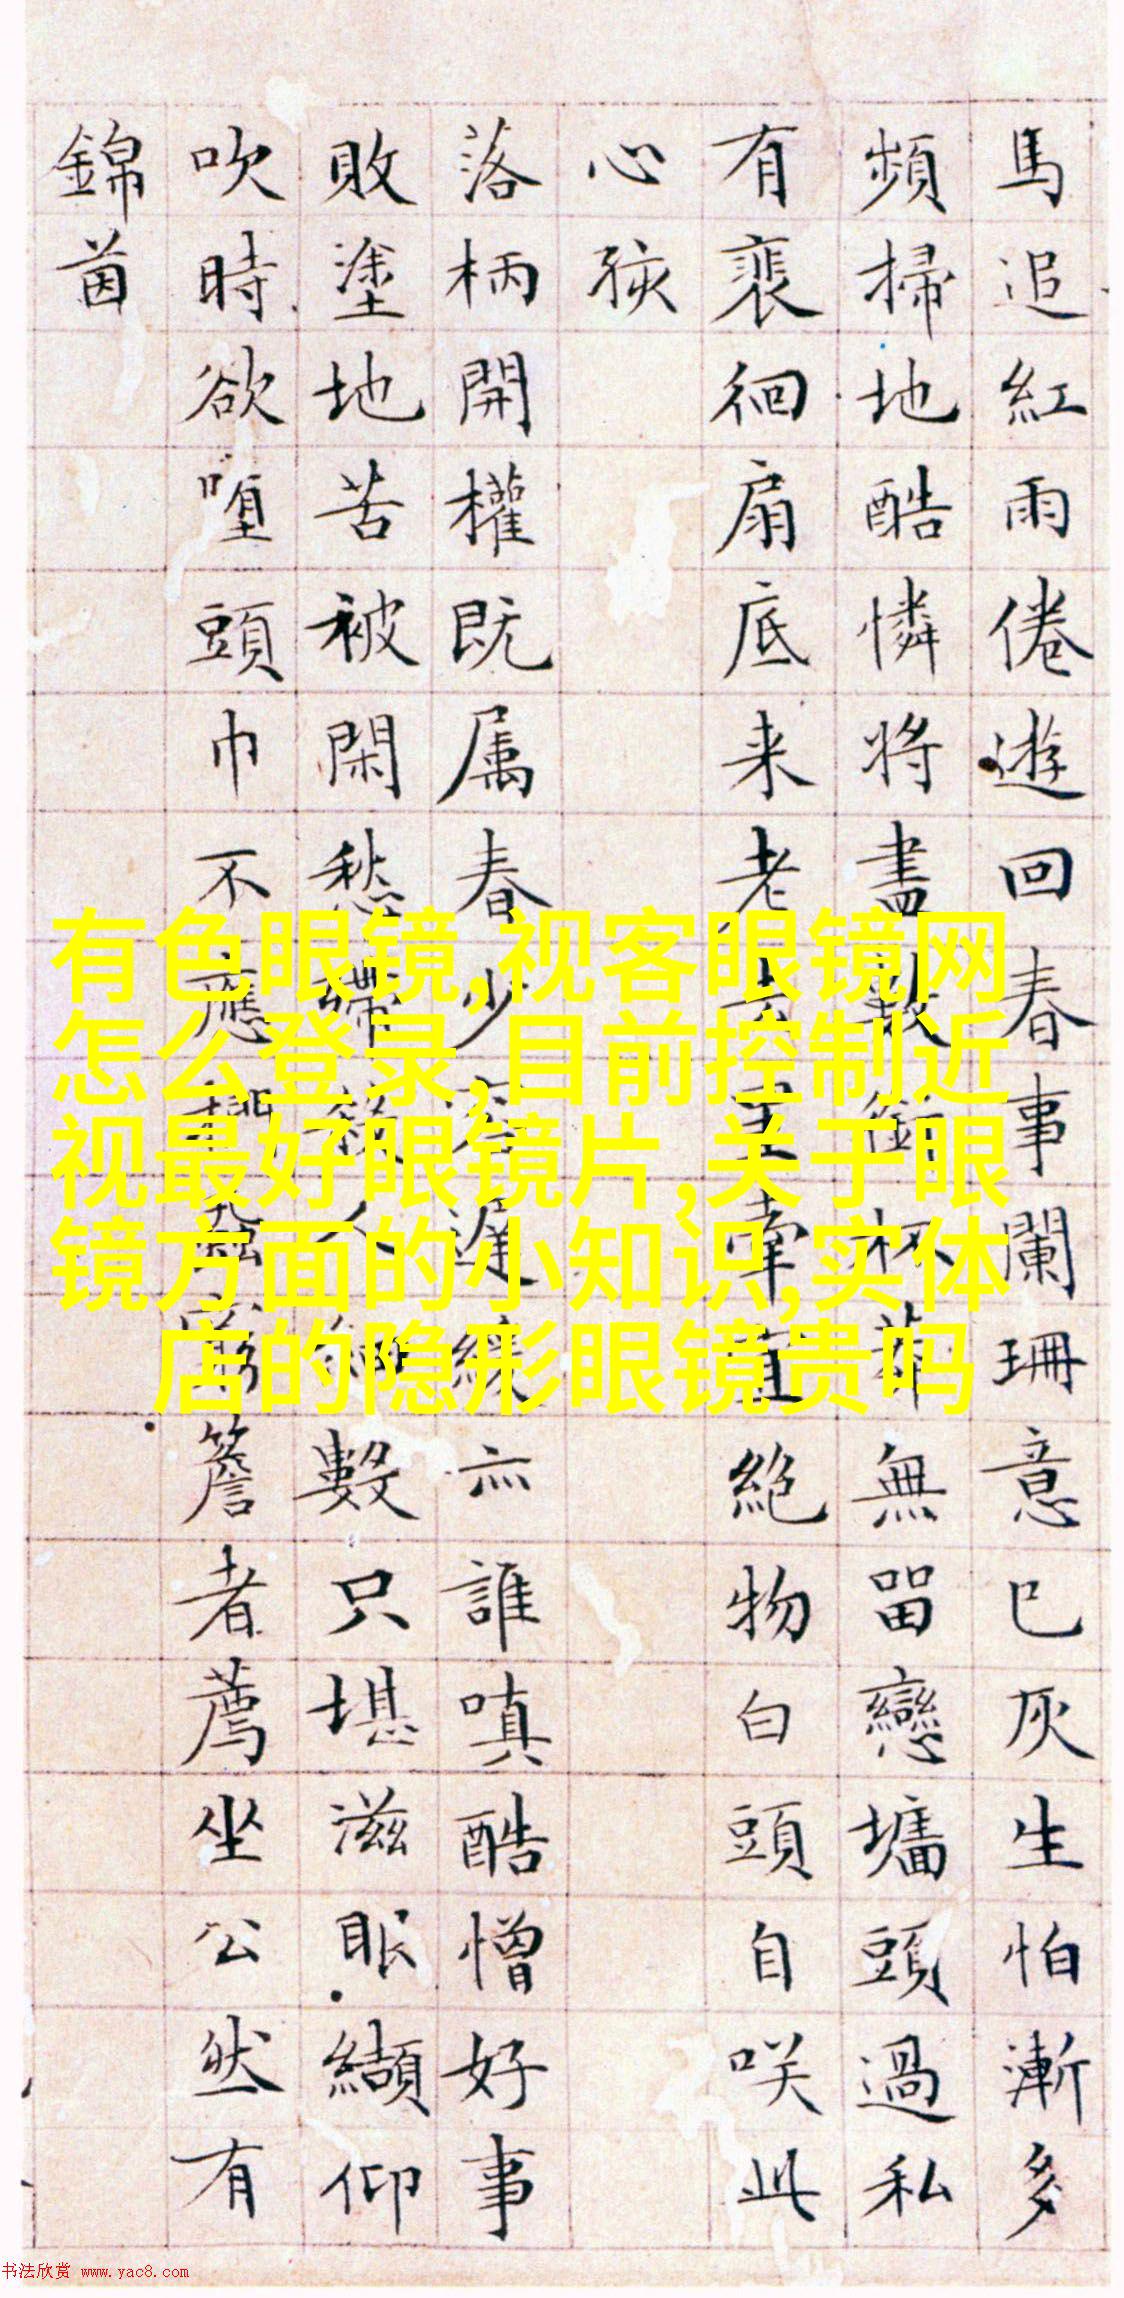 馬追紅雨倦遊回春事闌珊意已灰生怕漸多
頻掃地酷憐將盡數銜杯莽無畱戀墻頭過私
有裵徊扇底来老去牽直絶物白頭自咲此
心孩
落柄開權既属春少容遲緩亦誰嗔酷憎好事
敗塗地苦被閑愁殢人細數只堪滋眼纈仰
吹時欲頭巾不應捫蝨窮簷者薦坐公然有
錦茵
有色眼镜,视客眼镜网
怎么登录,目前控制近
视最好眼镜片,关于眼
镜方面的小知识,实体
店的隐形眼镜贵吗
书法欣赏 www.yac8.com